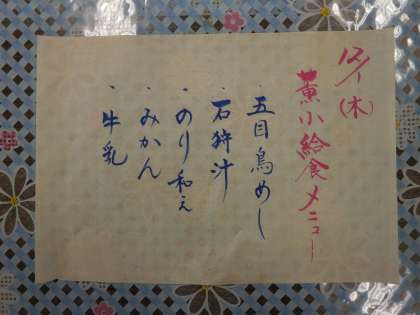 12/1(木)
薫小給食メニュー
・五目鳥めし
・石狩汁
・のり和え
・みかん
・牛乳